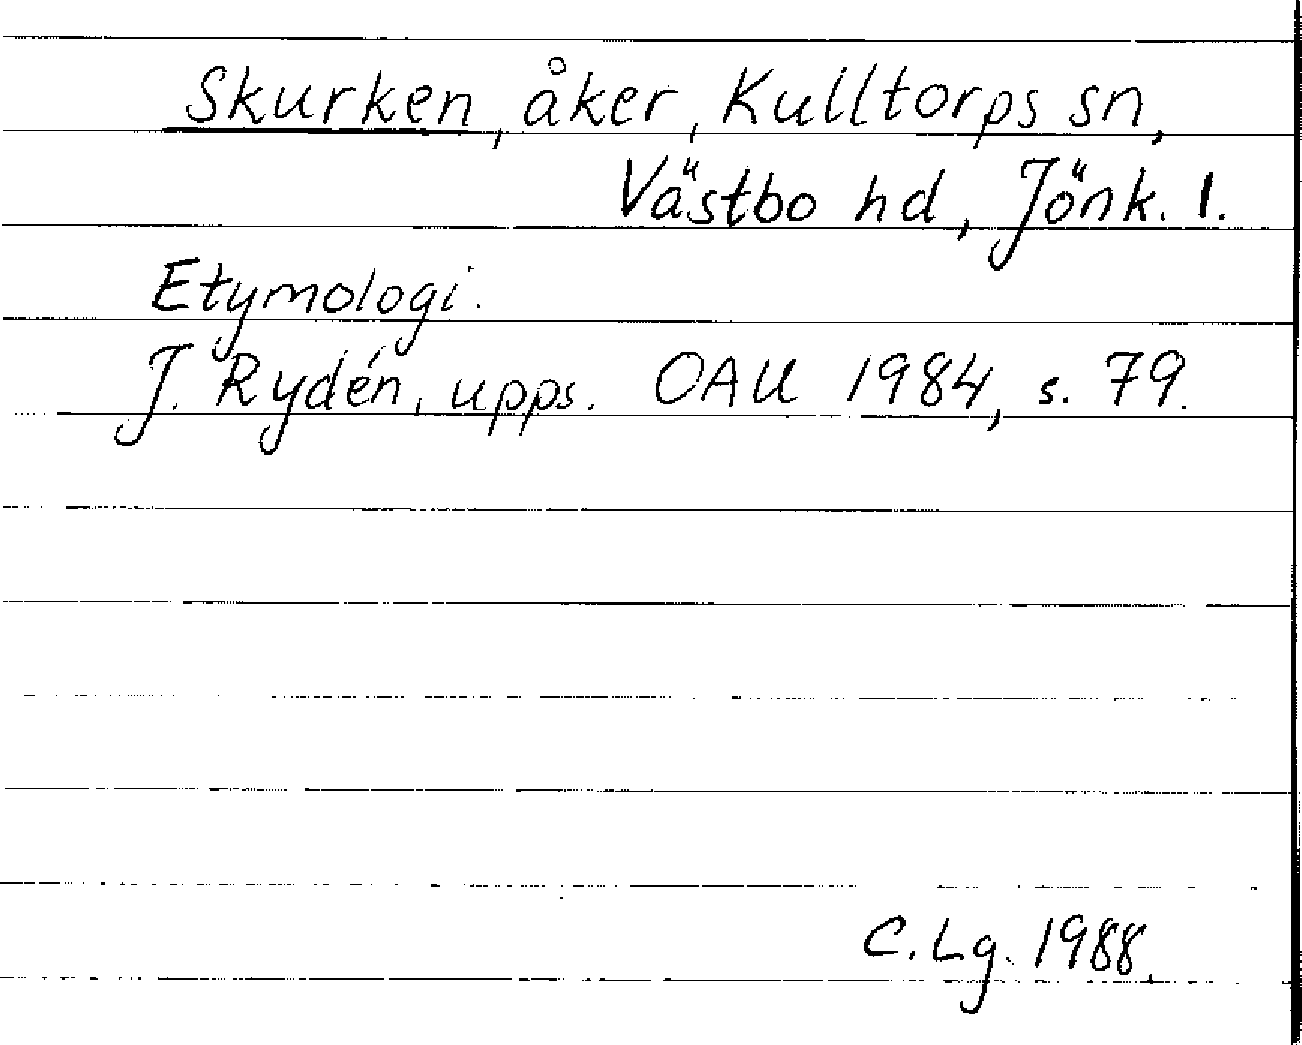 Skurken, åker, Kulltorps sn,
Västbo hd, Jönk. l.
Etymologi.
J. Rydén, upps. OAU 1984, s. 79.
C. Lg. 1988.